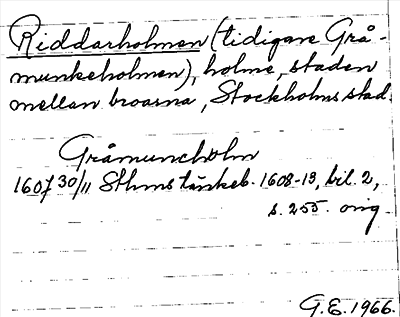 Riddarholmen (tidigare Grå-
munkeholmen), holme, staden
mellan broarna, Stockholms stad.
Gråmuncholm
1607 30/11 Sthms tänkeb. 1608-13, bil. 2,
s. 255. orig.
G.E. 1966.